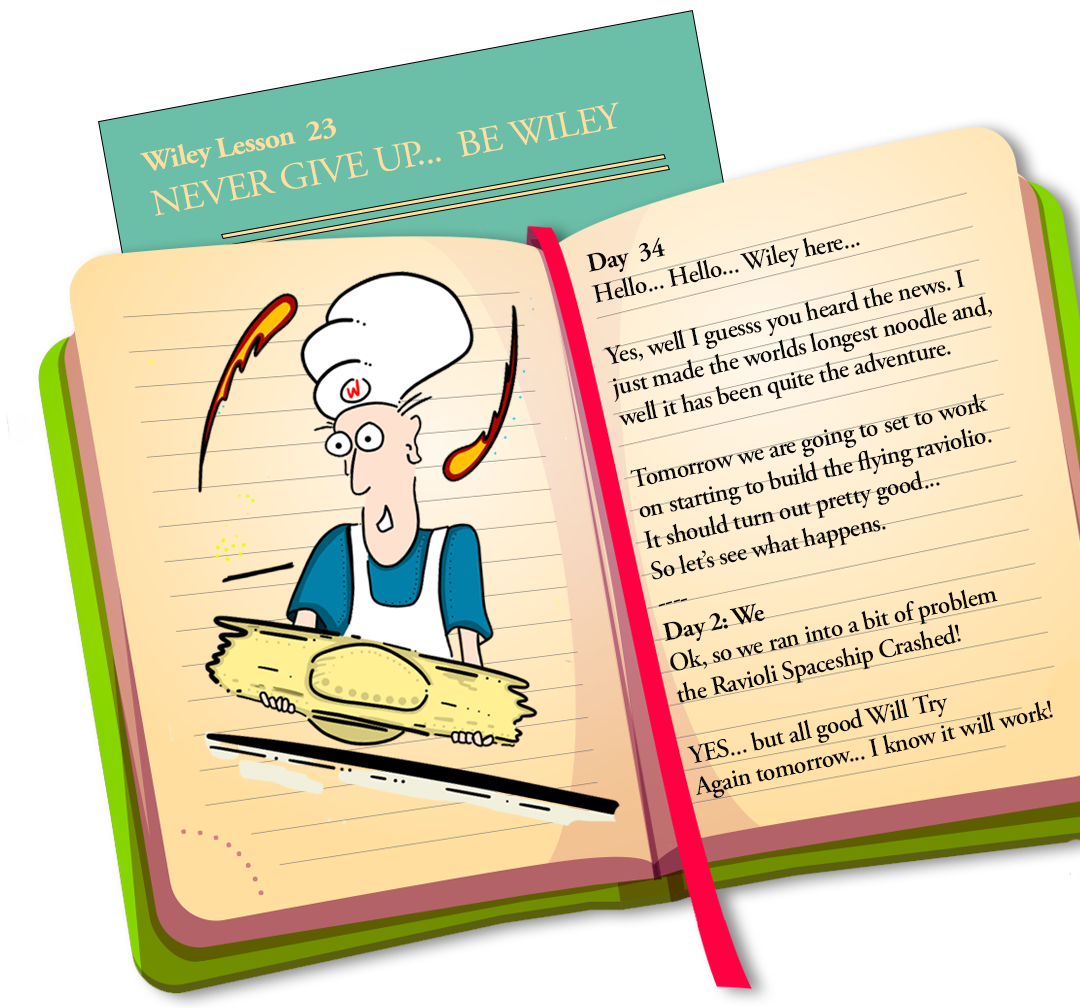 Wiley Lesson 23
NEVER GIVE UP... BE WILEY
W
Day 34
Hello... Hello... Wiley here...
Yes, well I guesss you heard the news. I
just made the worlds longest noodle and,
well it has been quite the adventure.
Tomorrow we are going to set to work
on starting to build the flying raviolio.
It should turn out pretty good...
So let's see what happens.
----
Day 2: We
Ok, so we ran into a bit of problem
the Ravioli Spaceship Crashed!
YES... but all good Will Try
Again tomorrow... I know it will work!